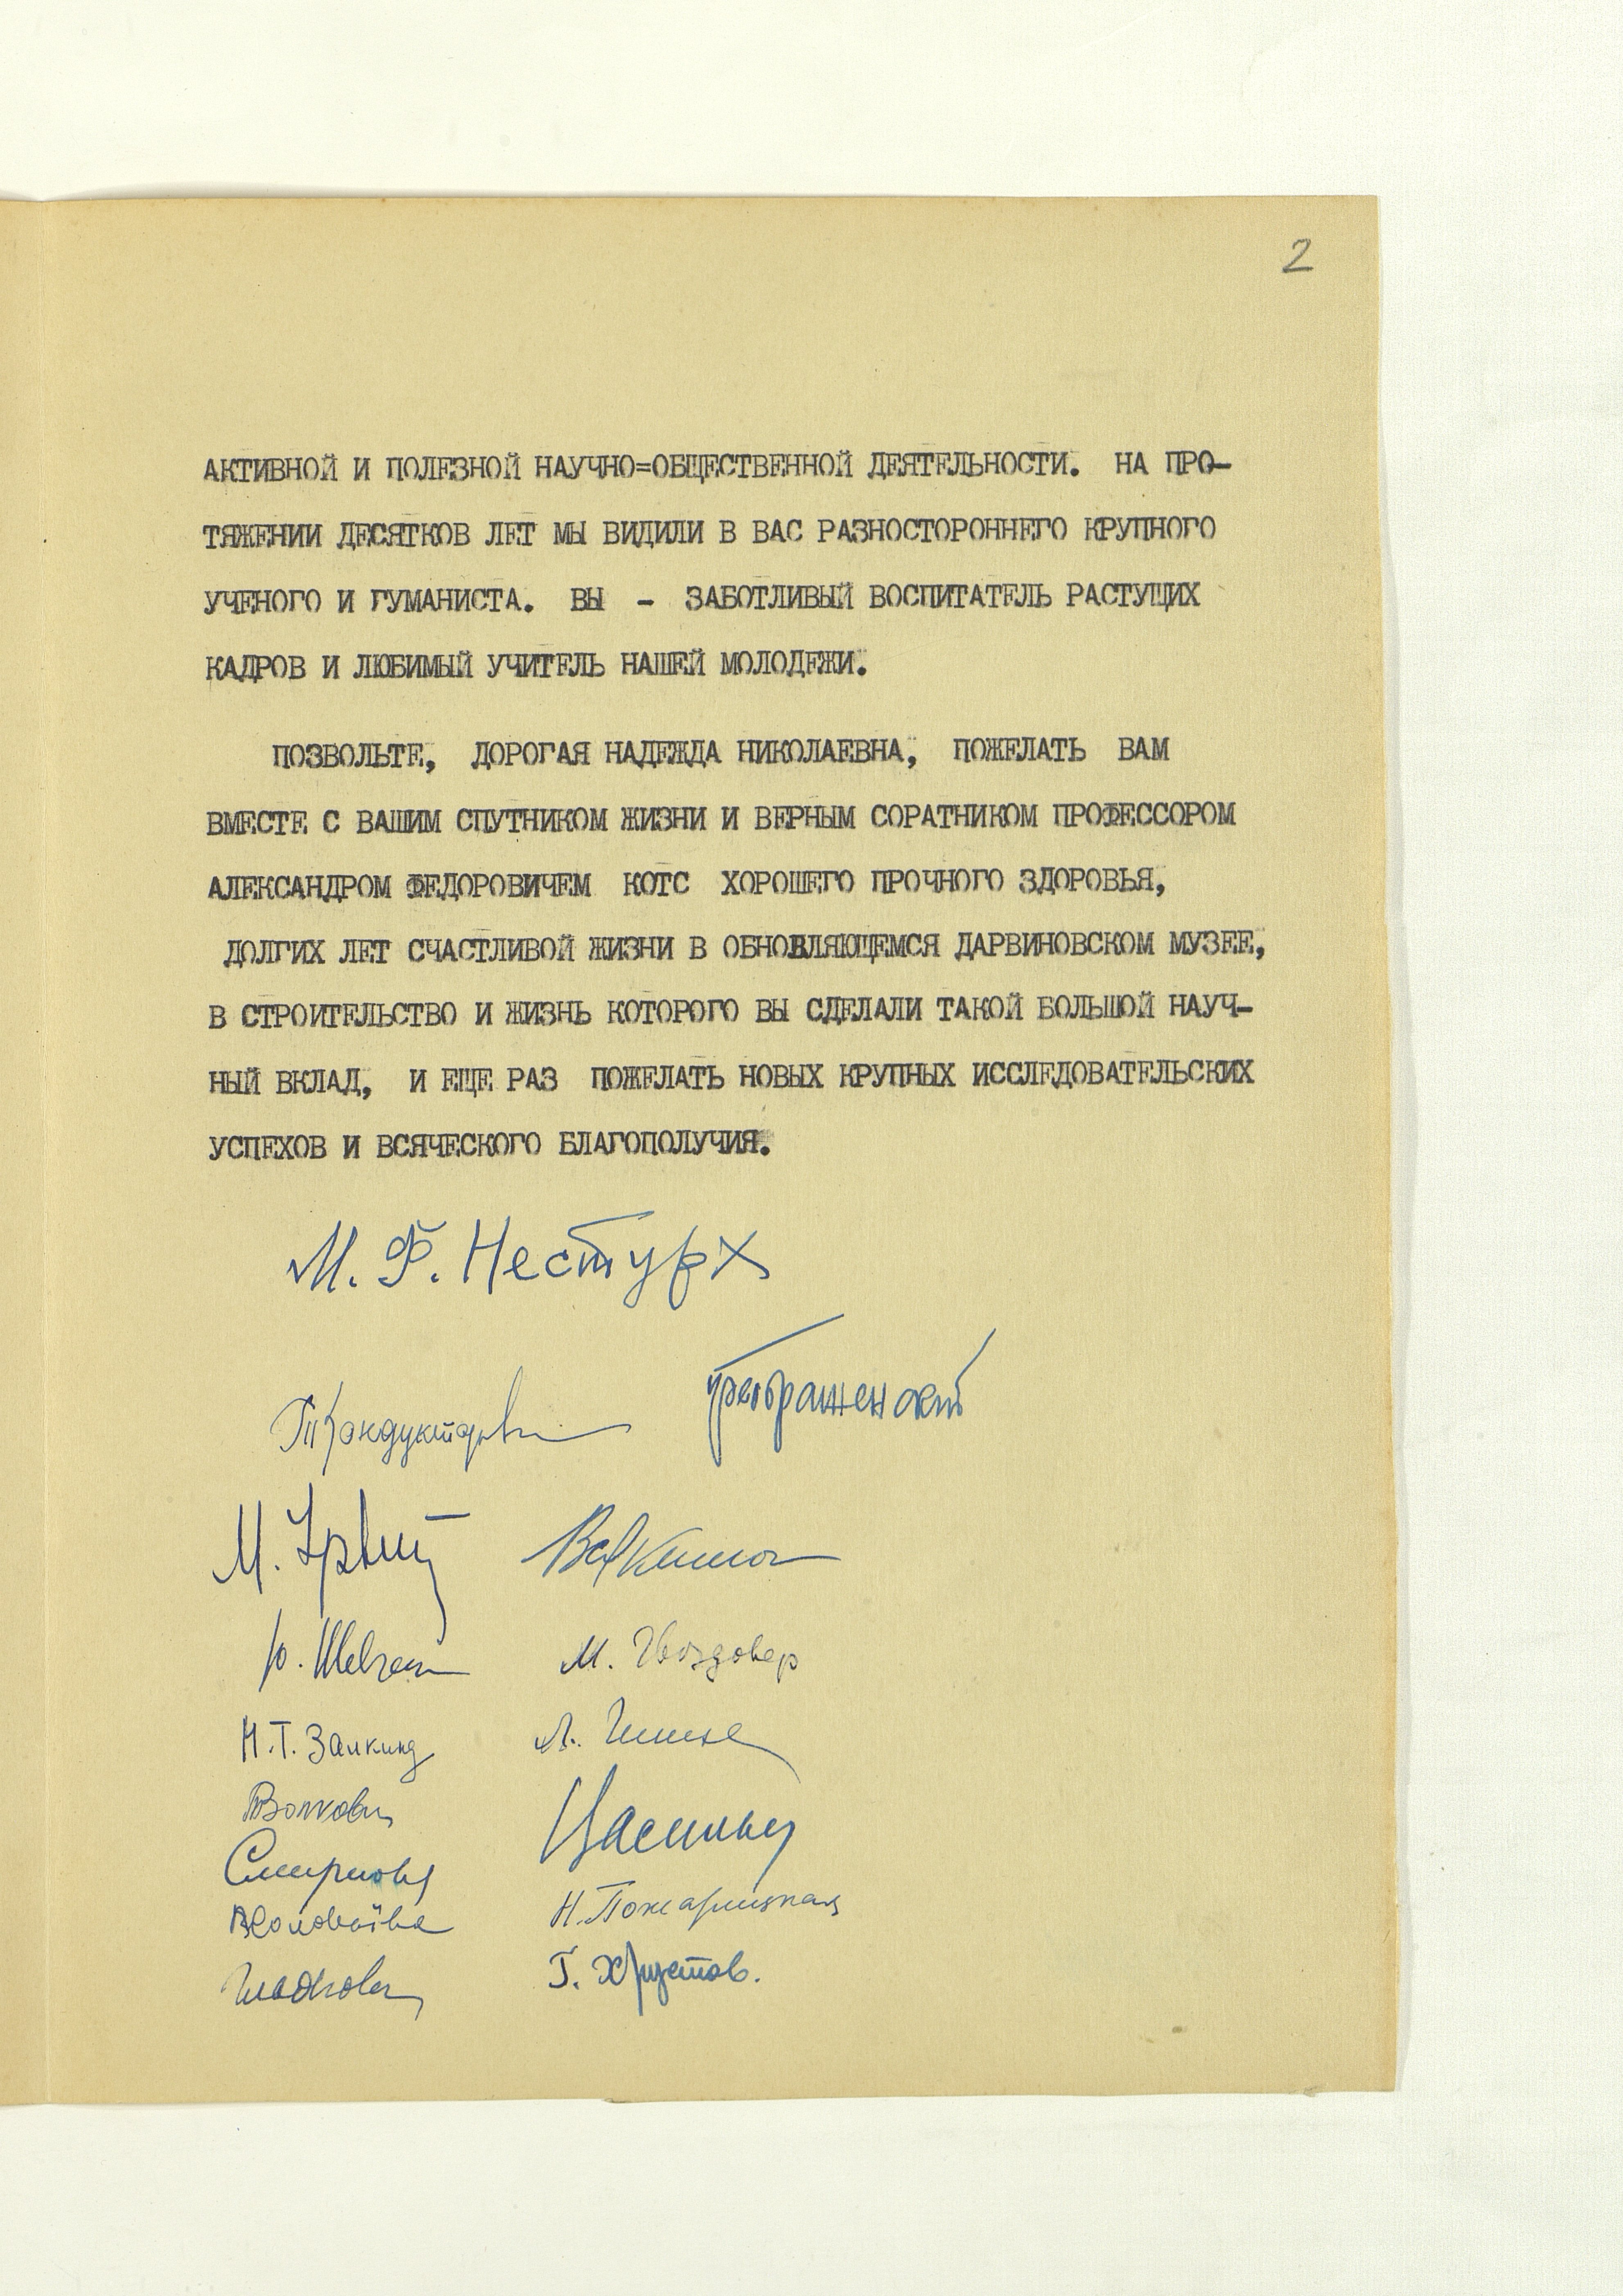 2
АКТИВНОЙ И ПОЛЕЗНОЙ НАУЧНО=ОБЩЕСТВЕННОЙ ДЕЯТЕЛЬНОСТИ. НА ПРО-
ТЯЖЕНИИ ДЕСЯТКОВ ЛЕТ МЫ ВИДИЛИ В ВАС РАЗНОСТОРОННЕГО КРУПНОГО
УЧЕНОГО И ГУМАНИСТА. ВЫ - ЗАБОТЛИВЫЙ ВОСПИТАТЕЛЬ РАСТУЩИХ
КАДРОВ И ЛЮБИМЫЙ УЧИТЕЛЬ НАШЕЙ МОЛОДЕЖИ.
ПОЗВОЛЬТЕ, ДОРОГАЯ НАДЕЖДА НИКОЛАЕВНА, ПОЖЕЛАТЬ ВАМ
ВМЕСТЕ С ВАШИМ СПУТНИКОМ ЖИЗНИ И ВЕРНЫМ СОРАТНИКОМ ПРОФЕССОРОМ
АЛЕКСАНДРОМ ФЕДОРОВИЧЕМ КОТС ХОРОШЕГО ПРОЧНОГО ЗДОРОВЬЯ,
ДОЛГИХ ЛЕТ СЧАСТЛИВОЙ ЖИЗНИ В ОБНОВЛЯЮЩЕМСЯ ДАРВИНОВСКОМ МУЗЕЕ,
В СТРОИТЕЛЬСТВО И ЖИЗНЬ КОТОРОГО ВЫ СДЕЛАЛИ ТАКОЙ БОЛЬШОЙ НАУЧ-
НЫЙ ВКЛАД, И ЕЩЕ РАЗ ПОЖЕЛАТЬ НОВЫХ КРУПНЫХ ИССЛЕДОВАТЕЛЬСКИХ
УСПЕХОВ И ВСЯЧЕСКОГО БЛАГОПОЛУЧИЯ.
М. Ф. Нестурх
М.
М. Гвоздовер
Н.Т. Залкинд
Смирнова
Н. Пожарицкая
Гладкова
Г. Хрустов.